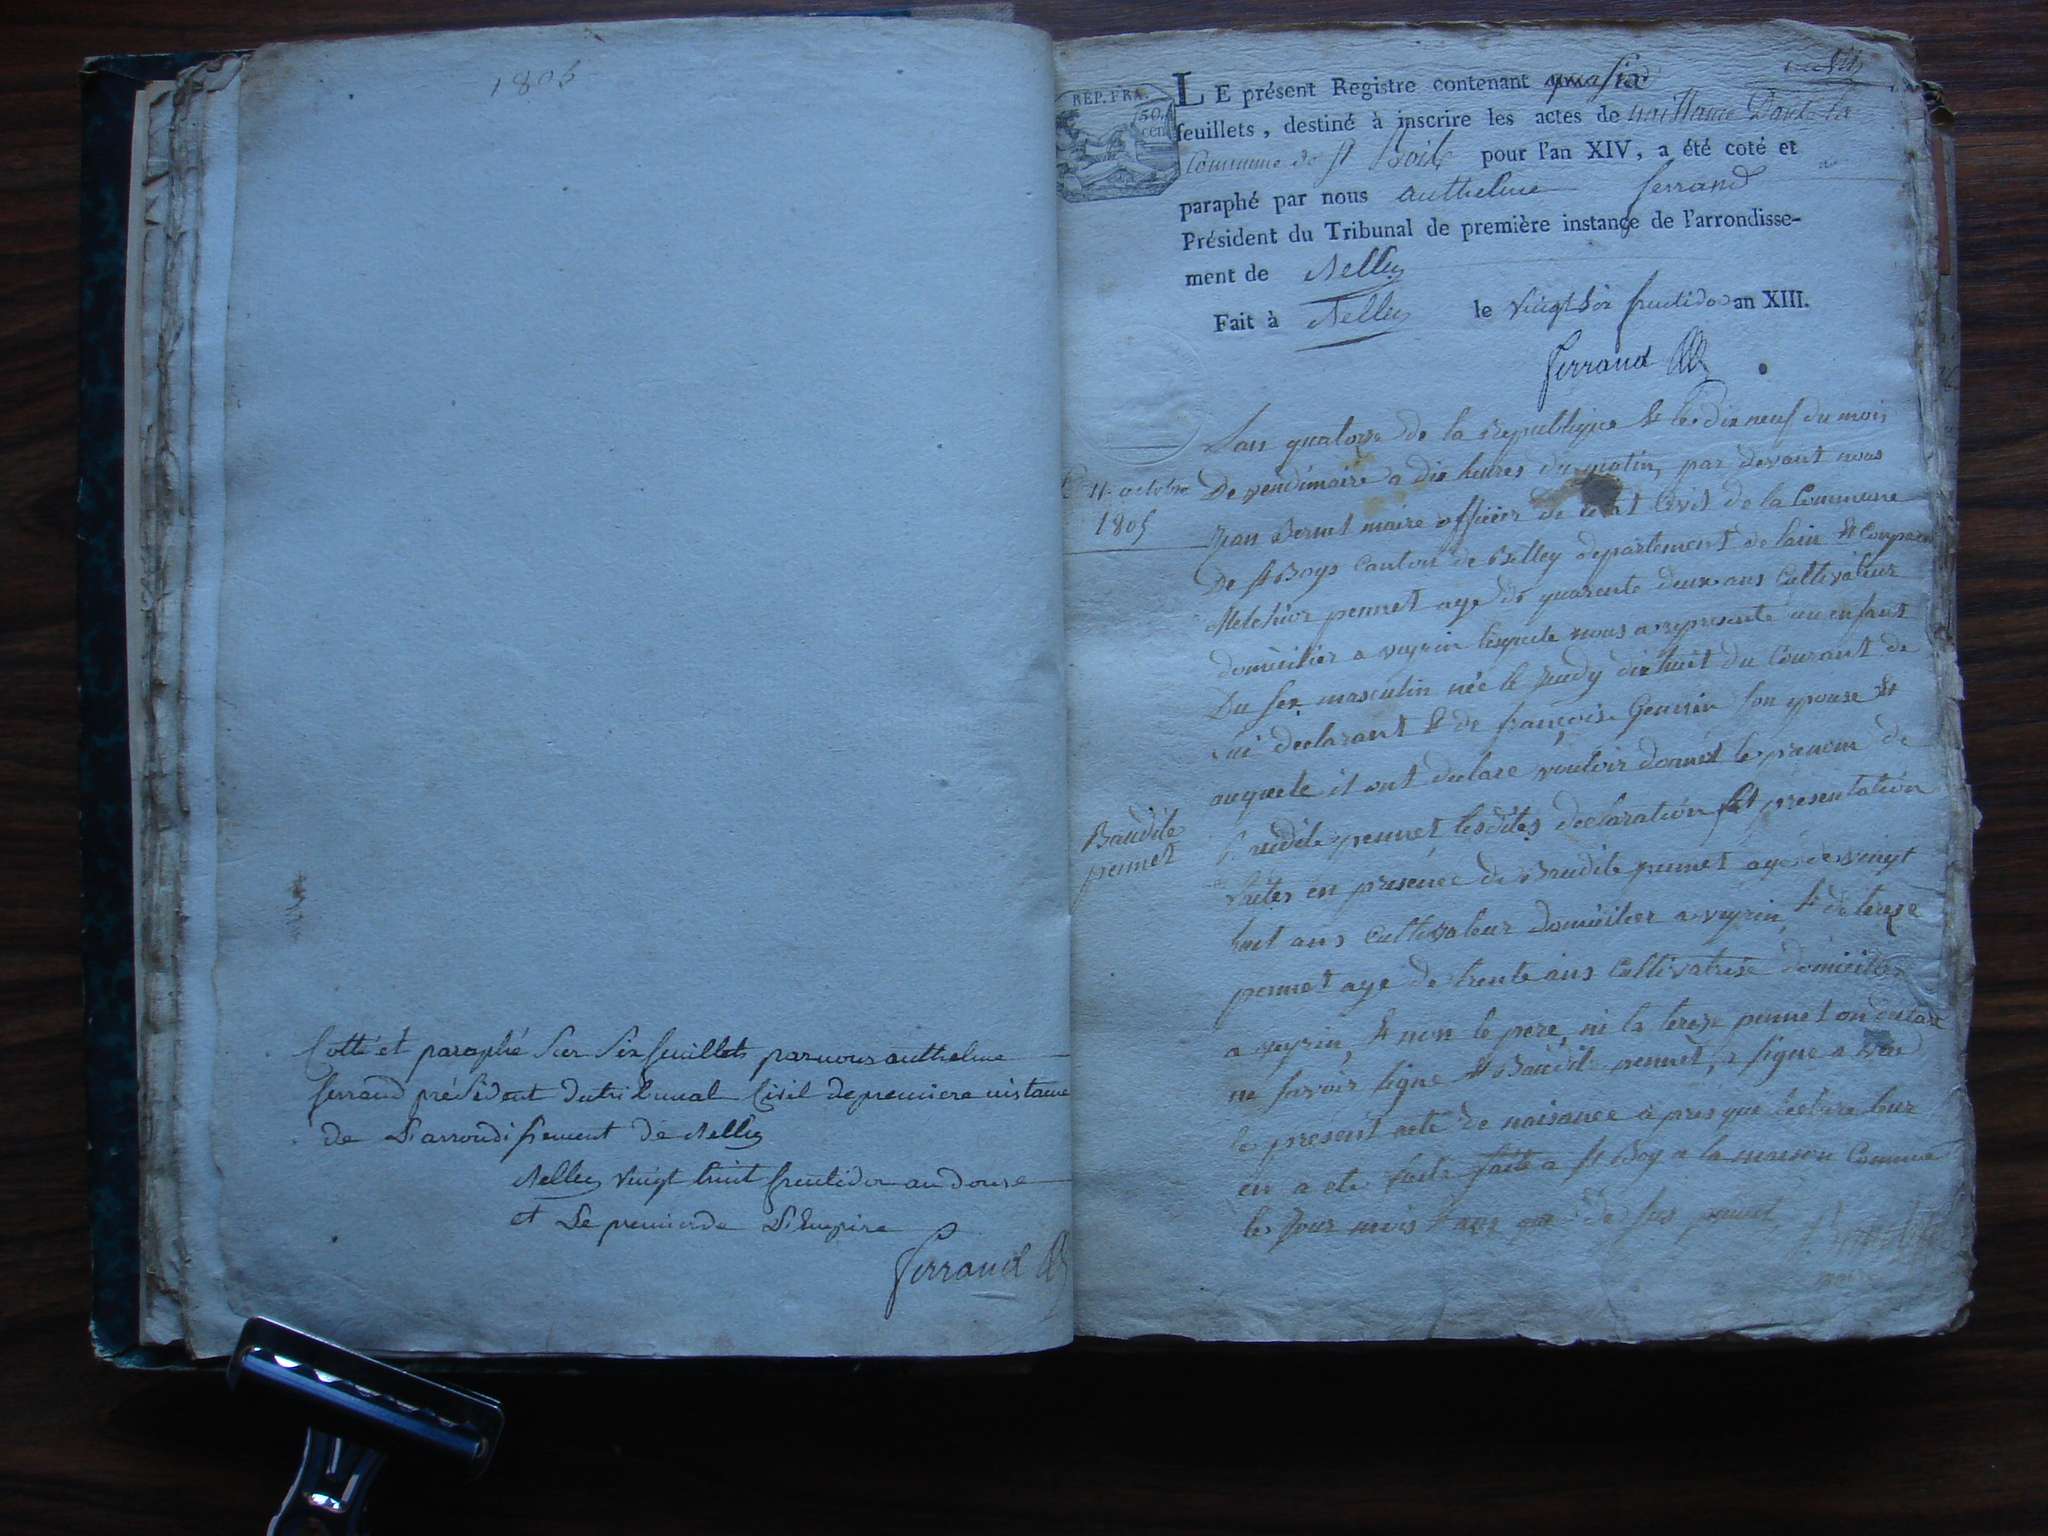 1806
Cotté et paraphé sur six feuillets par nous anthelme
ferrand président du tribunal Civil de premiere instance
de L'arrondissement de Belley
Belley vingt huit fructidor an douze
et Le premier de L'Empire
ferrand
REP. FRA.
50
cen
LE présent Registre contenant six
feuillets, destiné à inscrire les actes de naissance Dont la
Commune de St Boil pour l'an XIV, a été coté et
paraphé par nous anthelme ferrand
Président du Tribunal de première instance de l'arrondisse-
ment de Belley
Fait à Belley le vingt six fructidor an XIII.
ferrand
11 octobre
1805
Lan quatorze de la republique & le dix neuf du mois
De vendimaire a dix heures du matin, par devant nous
Jean Bernet maire officier de letat Civil de la Commune
De St Boys Canton de Belley departement de lain & Comparu
Melchior pennet age de quarente deux ans Cultivateur
domicilier a veyrin lequele nous a represente un enfant
Du sex masculin née le Jeudy dix huit du Courant de
lui declarant & de françoise Genirin son epouse &
auquele il ont declare vouloir donner le prenom de
Baudile
pennet
Baudile pennet, lesdites declaration & presentation
faites en presence de Baudile pennet age de vingt
huit ans Cultivateur domicilier a veyrin & de terese
pennet age de trente ans Cultivatrise domicilier
a veyrin, & non le pere, ni la terese pennet on declare
ne savoir signe & Baudile pennet, a signe a vec
le present acte de naisance apres que lecture leur
en a ete faite faite a St Boy a la maison Commune
les Jour mois & ans que de sus pennet